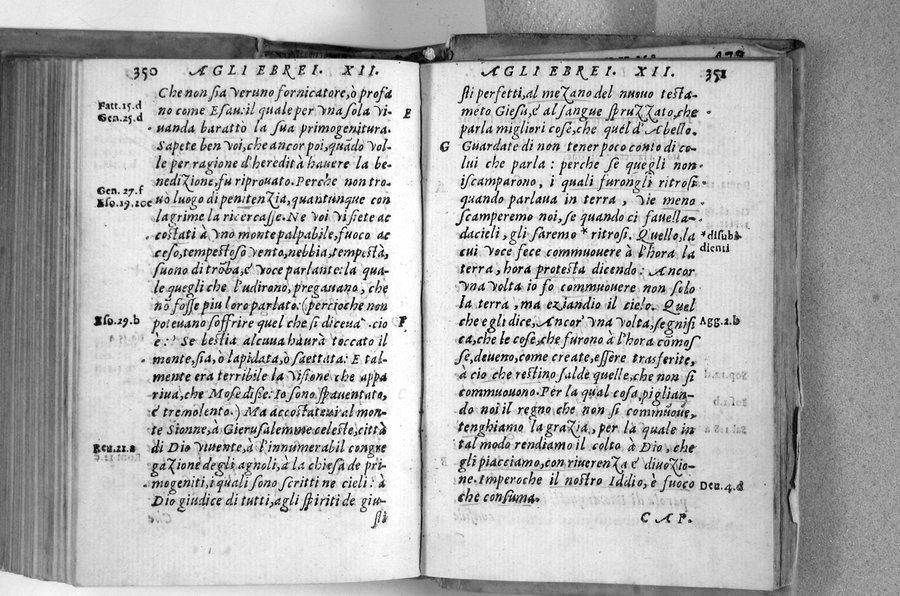 350
AGLI EBREI. XII.
Che non sia veruno fornicatore, ò profa
no come Esau: il quale per vna sola vi-
uanda barattò la sua primogenitura.
Sapete ben voi, che ancor poi, quãdo vol-
le per ragione d'heredità hauere la be-
nedizione, fu riprouato. Perche non tro-
uò luogo di penitenzia, quantunque con
lagrime la ricercasse. Ne voi vi siete ac
costati à vno monte palpabile, fuoco ac
ceso, tempestoso vento, nebbia, tempestà,
suono di trõba, e voce parlante: la qua-
le quegli che l'udirono, pregauano, che
nõ fosse piu loro parlato: (percioche non
poteuano soffrire quel che si diceua. cio
è: Se bestia alcuna haurà toccato il
monte, sia, ò lapidata, ò saettata: E tal-
mente era terribile la visione che appa
riua, che Mose disse: Io sono spauentato,
e tremolento.) Ma accostateui al mon-
te Sionne, à Gierusalemme celeste, città
di Dio viuente, à l'innumerabil congre
gazione degli agnoli, à la chiesa de pri-
mogeniti, i quali sono scritti ne cieli: à
Dio giudice di tutti, agli spiriti de giu-
sti
Fatt. 15.d
Gen. 25.d
Gen. 27.f
Eso. 19.20c
Eso. 19.b
Reu. 21.a
E
F
AGLI EBREI. XII.
351
sti perfetti, al mezano del nuouo testa-
mẽto Giesu, e al sangue spruzzato, che
parla migliori cose, che quel d'Abello.
G
Guardate di non tener poco conto di co-
lui che parla: perche se quegli non
iscamparono, i quali furongli ritrosi
quando parlaua in terra, vie meno
scamperemo noi, se quando ci fauella-
dacieli, gli saremo * ritrosi. Quello, la
cui voce fece commuouere à l'hora la
terra, hora protesta dicendo: Ancor
vna volta io fo commuouere non solo
la terra, ma eziandio il cielo. Quel
che egli dice, Ancor' vna volta, segnifi
ca, che le cose, che furono à l'hora comos
se, deueno, come create, essere trasferite,
à cio che restino salde quelle, che non si
commuouono. Per la qual cosa, piglian-
do noi il regno che non si commuoue,
tenghiamo la grazia, per la quale in
tal modo rendiamo il colto à Dio, che
gli piacciamo, con riuerenza e diuozio-
ne. Imperoche il nostro Iddio, è fuoco
che consuma.
CAP.
*disubi
dienti
Agg. 2.b
Deu. 4.d